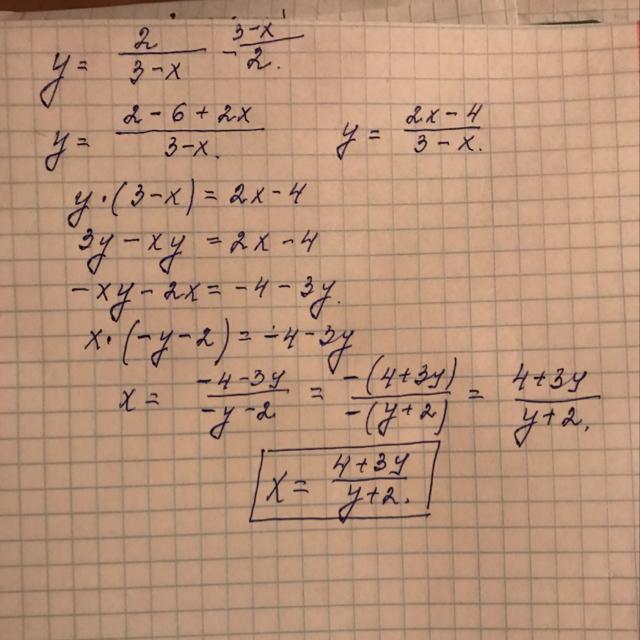 y = 2/(3-x) - (3-x)/2.
y = (2-6+2x)/(3-x). y = (2x-4)/(3-x).
y·(3-x) = 2x-4
3y-xy = 2x-4
-xy-2x = -4-3y.
x·(-y-2) = -4-3y
x = (-4-3y)/(-y-2) = (-(4+3y))/(-(y+2)) = (4+3y)/(y+2).
x = (4+3y)/(y+2).